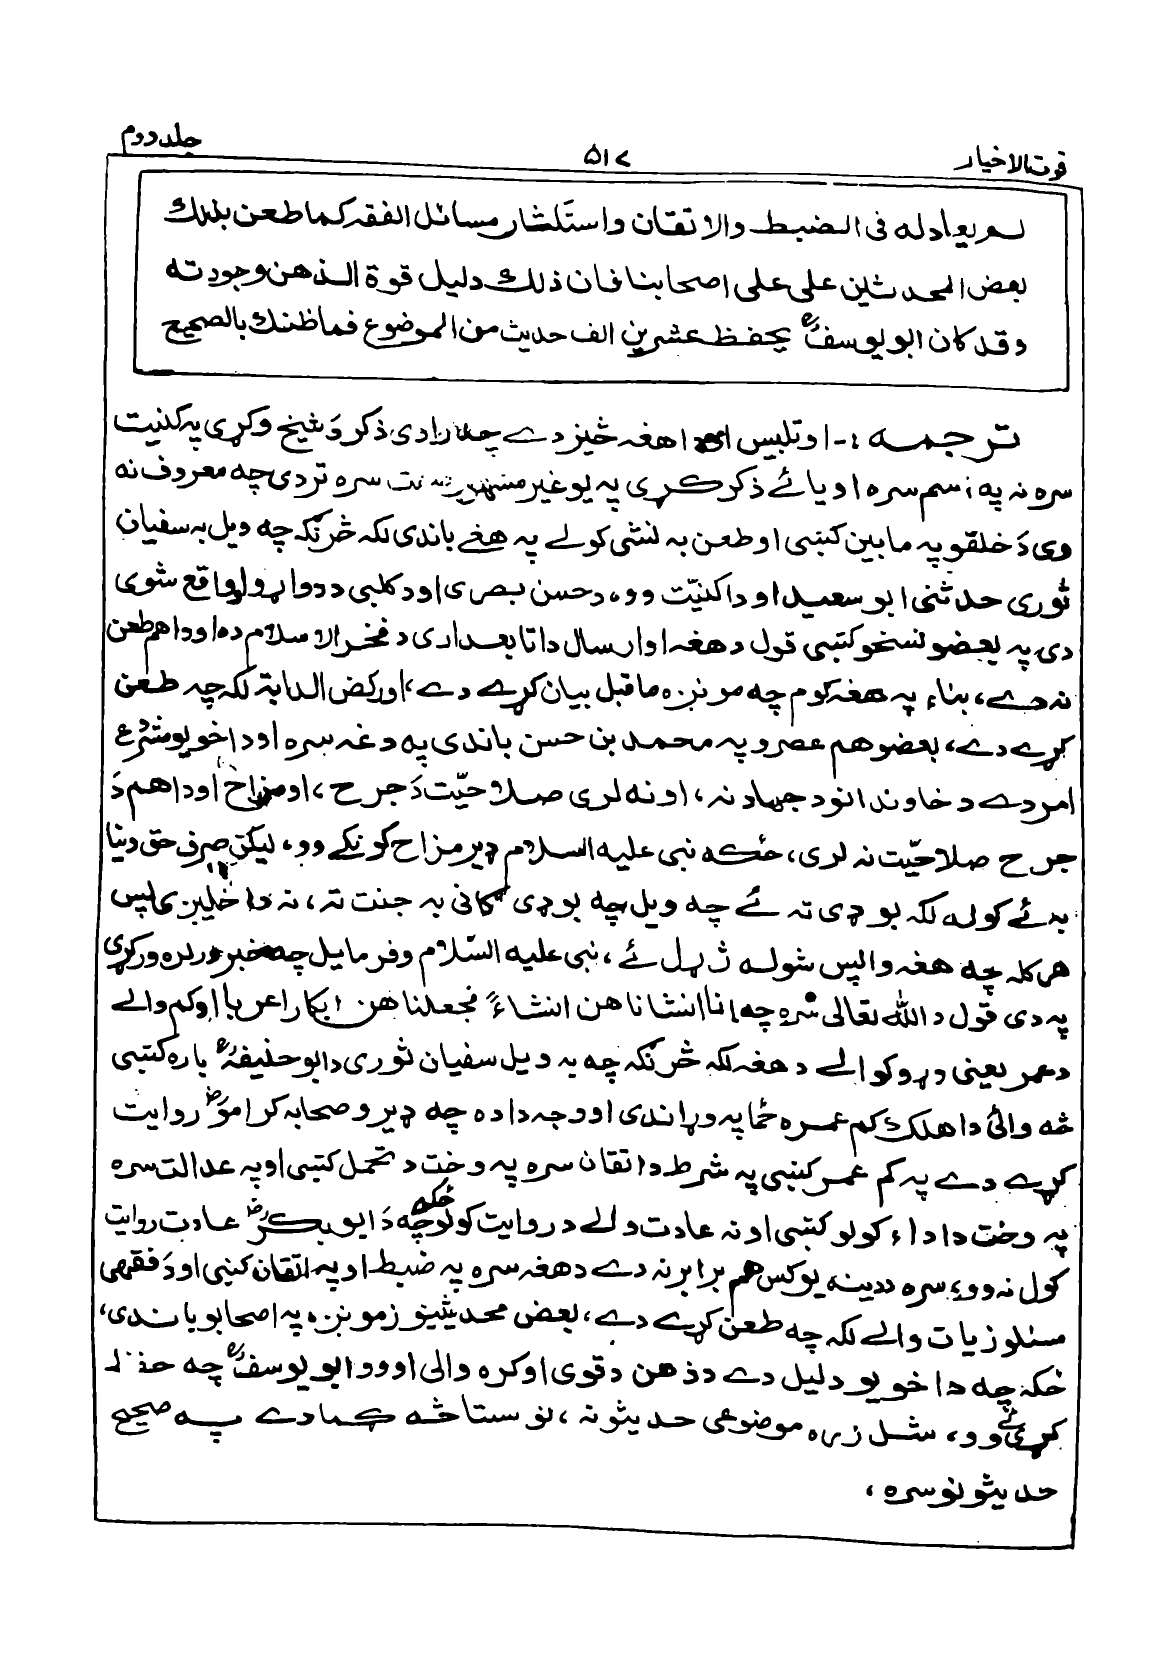 قوت الاخیار ۵۱۷ جلد دوم
لم یعادله فی الضبط والاتقان واستکثار مسائل الفقه کما طعن بذلك
بعض المحدثین علی علی اصحابنا فان ذلك دلیل قوة الذهن وجودته
وقد کان ابو یوسفؒ یحفظ عشرین الف حدیث من الموضوع فما ظنك بالصحیح
ترجمه :- او تلبیس هغه څیز دے چه راوی ذکر دَ شیخ وکړی په کنیت
سره نه په اسم سره او یائے ذکر کړی په یو غیر مشهور سره تردی چه معروف نه
وی دَ خلقو په مابین کښی او طعن به نشی کولے په هغے باندی لکه څرنګه چه ویل به سفیان
ثوری حدثنی ابو سعید او دا کنیت وو، د حسن بصری او د کلبی د دواړو او واقع شوی
دی په بعضو نسخو کښی قول د هغه او ارسال دا تابعداری د فخر الاسلام ده او دا هم طعن
نه دے، بناء په هغه کوم چه مونږه ماقبل بیان کړے دے، او رکض الدابة لکه چه طعن
کړے دے، بعضو هم عصرو په محمد بن حسن باندی په دغه سره او دا خو یو مشروع
امر دے د خاوندانو د جهاد نه، او نه لری صلاحیّت دَ جرح، او مزاح او دا هم دَ
جرح صلاحیّت نه لری، ځکه نبی علیه السلام ډیر مزاح کونکے وو، لیکن صرف حق وینا
به ئے کوله لکه بوډی ته ئے چه ویل چه بوډی ګانی به جنت ته، نه داخلیږی پس
هر کله چه هغه واپس شوله ژړل ئے، نبی علیه السّلام وفرمایل چه خبر ورله ورکړی
په دی قول د الله تعالی سره چه انا انشاناهن انشاءً فجعلناهن ابکارا عربا او کم والے
د عمر یعنی وړوکوالے د هغه لکه څرنګه چه به ویل سفیان ثوری د ابو حنیفهؒ باره کښی
څه وائی دا هلك کم عمره ځما په وړاندی او وجه دا ده چه ډیرو صحابه کرامو روایت
کړے دے په کم عمر کښی په شرط د اتقان سره په وخت د تحمل کښی او په عدالت سره
په وخت د اداء کولو کښی او نه عادت والے د روایت کولو ځکه چه دَ ابوبکر عادت روایت
کول نه وو، سره د دینه یو کس هم برابر نه دے د هغه سره په ضبط او په اتقان کښی او دَ فقهی
مسئلو زیات والے لکه چه طعن کړے دے، بعض محدثینو زمونږه په اصحابو باندی،
ځکه چه دا خو یو دلیل دے د ذهن د قوی او کره والی او وو ابو یوسفؒ چه حفظ
کړی ئے وو، شل زره موضوعی حدیثونه، نو ستا څه ګمان دے په صحیح
حدیثونو سره،